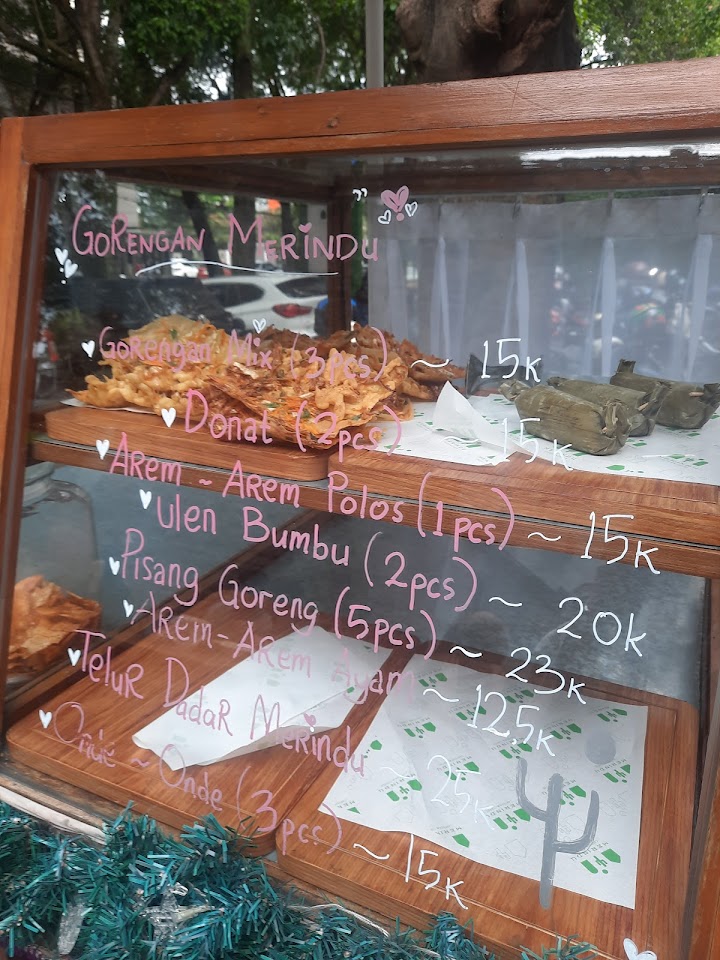 GORENGAN MERINDU
Gorengan Mix (3pcs) ~ 15K
Donat (2pcs) ~ 15K
Arem ~ Arem Polos (1pcs) ~ 15K
Ulen Bumbu (2pcs) ~ 20k
Pisang Goreng (5pcs) ~ 23K
Arem-Arem Ayam ~ 12,5K
Telur Dadar Merindu ~ 25K
Onde ~ Onde (3pcs) ~ 15K